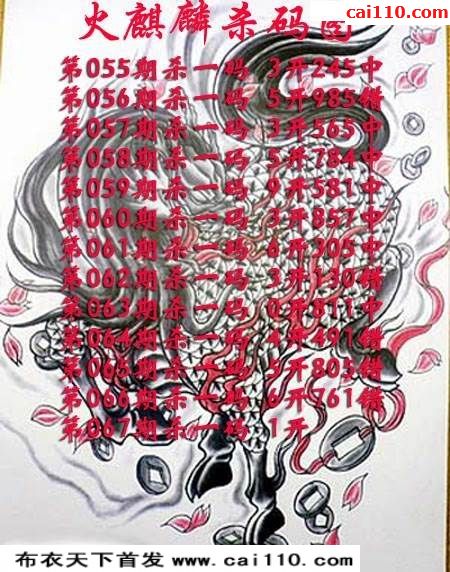 cai110.com
火麒麟杀码图
第055期杀一码 3开245中
第056期杀一码 5开985错
第057期杀一码 3开565中
第058期杀一码 5开784中
第059期杀一码 9开581中
第060期杀一码 3开857中
第061期杀一码 6开305中
第062期杀一码 3开130错
第063期杀一码 0开811中
第064期杀一码 4开491错
第065期杀一码 5开805错
第066期杀一码 6开761错
第067期杀一码 1开
布衣天下首发 www.cai110.com